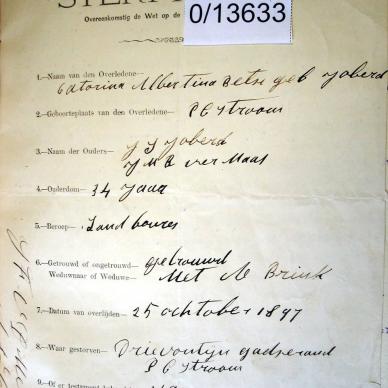 0/13633
Overeenkomstig de Wet op de
1.—Naam van den Overledene— Catorina Albertina Betse geb Joberd
2.—Geboorteplaats van den Overledene— P C Stroom
3.—Naam der Ouders— J J Joberd
J M B ver Maas
4.—Ouderdom— 34 Jaar
5.—Beroep— Land boures
6.—Getrouwd of ongetrouwd— getrouwd
Weduwnaar of Weduwe— Met
7.—Datum van overlijden— 25 ochtober 1897
8.—Waar gestorven— Drievontyn
P C Stroom